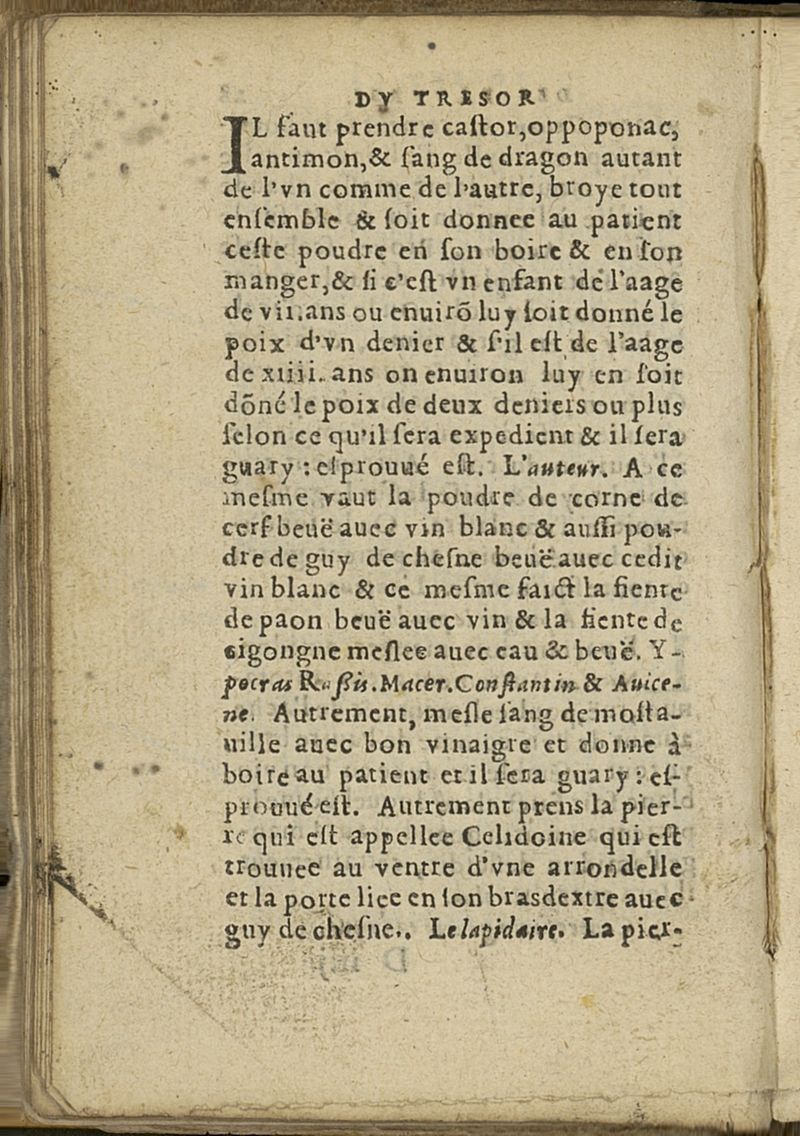 DV TRESOR
IL faut prendre caſtor,oppoponac,
antimon,& ſang de dragon autant
de l'vn comme de l'autre, broye tout
enſemble & ſoit donnee au patient
ceſte poudre en ſon boire & en ſon
manger,& ſi c'eſt vn enfant de l'aage
de vii.ans ou enuirõ luy ſoit donné le
poix d'vn denier & ſ'il eſt de l'aage
de xiiii. ans on enuiron luy en ſoit
dõné le poix de deux deniers ou plus
ſelon ce qu'il ſera expedient & il ſera
guary : eſprouué eſt. L'auteur. A ce
meſme vaut la poudre de corne de
cerf beuë auec vin blanc & auſſi pou-
dre de guy de cheſne beuë auec cedit
vin blanc & ce meſme faict la fiente
de paon beuë auec vin & la fiente de
cigongne meſlee auec eau & beuë. Y-
pocras Raſis.Macer.Conſtantin & Auice-
ne. Autrement, meſle ſang de moſta-
uille auec bon vinaigre et donne à
boire au patient et il ſera guary : eſ-
prouué eſt. Autrement prens la pier-
re qui eſt appellee Celidoine qui eſt
trouuee au ventre d'vne arrondelle
et la porte liee en ſon bras dextre auec
guy de cheſne.. Le lapidaire. La pier-